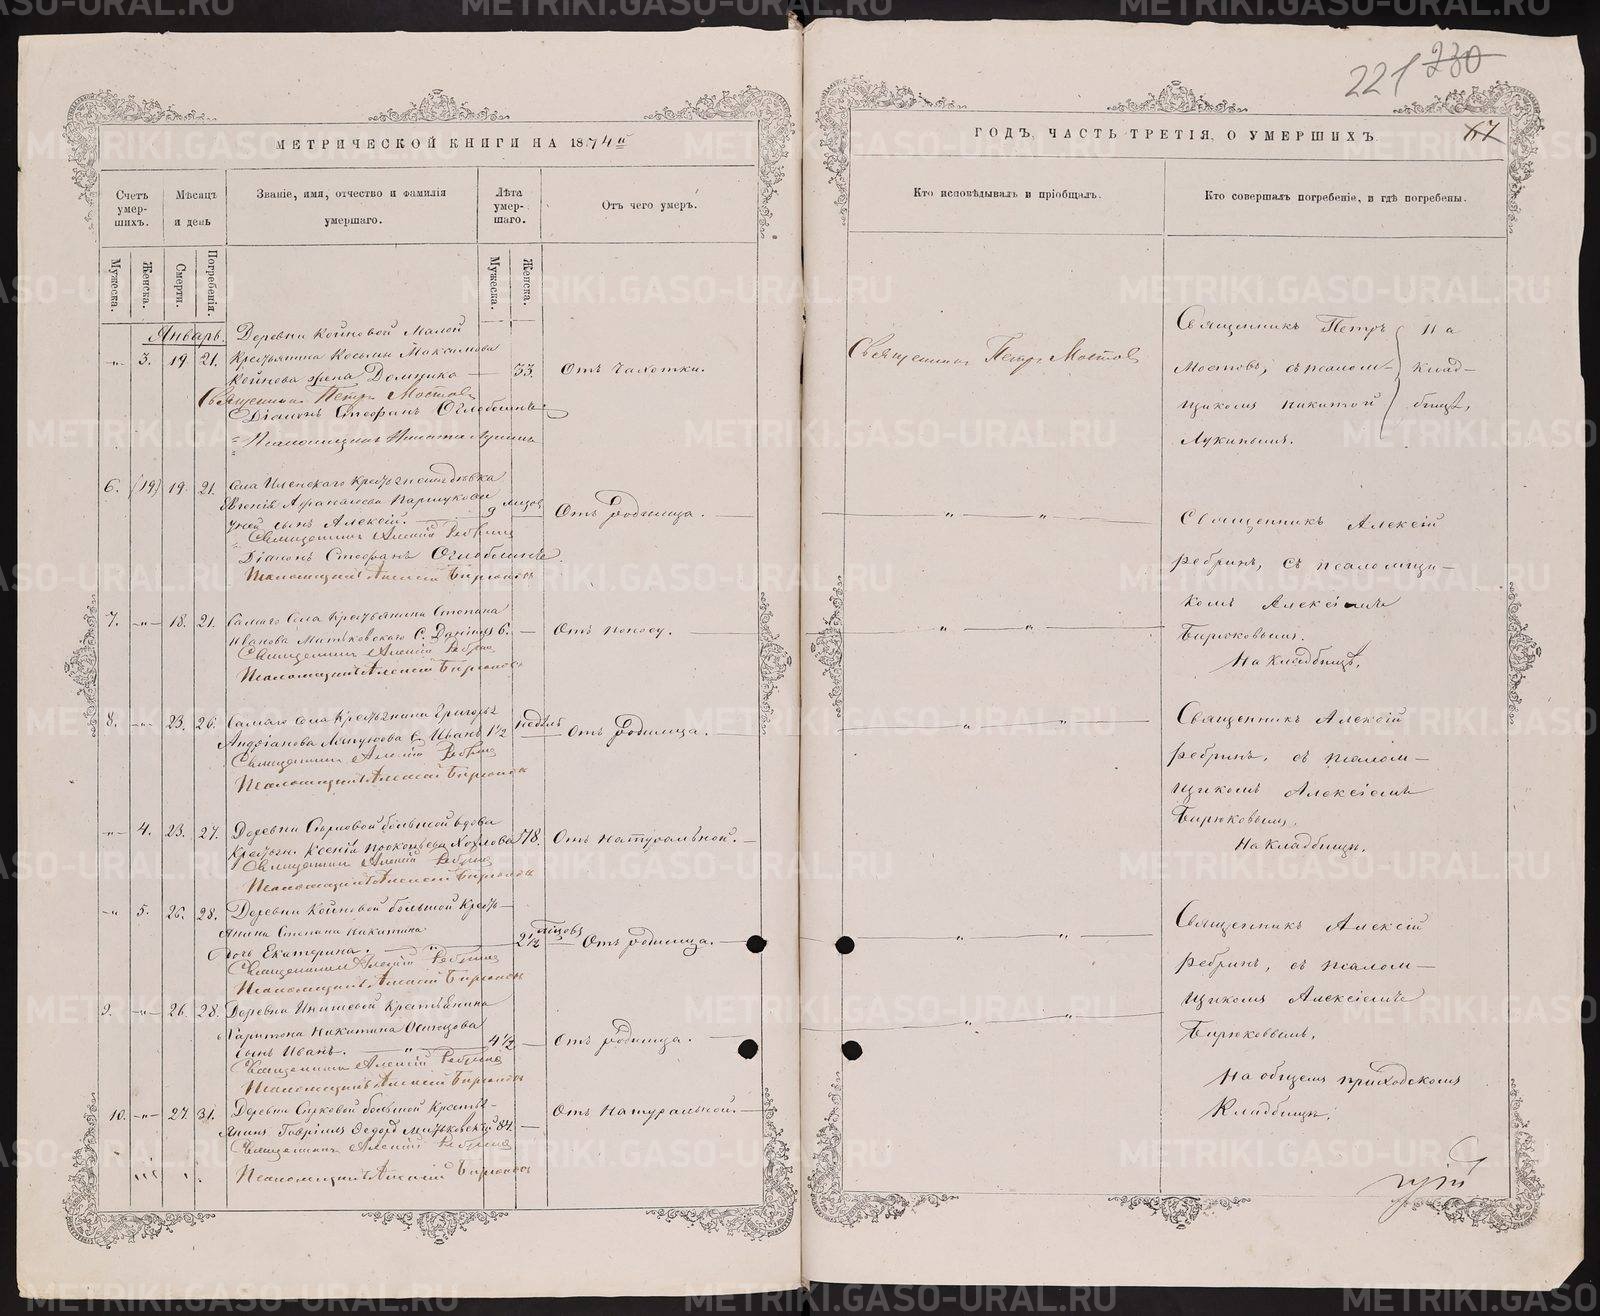 221 230
67
МЕТРИЧЕСКОЙ КНИГИ НА 1874й
ГОДЪ, ЧАСТЬ ТРЕТІЯ, О УМЕРШИХЪ.
Счетъ умер-шихъ.
Мѣсяцъ и день
Званіе, имя, отчество и фамилія умершаго.
Лѣта умер-шаго.
Отъ чего умеръ.
Кто исповѣдывалъ и пріобщалъ.
Кто совершалъ погребеніе, и гдѣ погребены.
Мужеска.
Женска.
Смерти.
Погребенія.
Мужеска.
Женска.
Январь.
Деревни Койновой Малой
3. 19. 21. Крестьянина Косьмы Максимова
Койнова жена Домника 33. Отъ чахотки.
Священникъ Петръ Мостовъ
Діаконъ Стефанъ Оглоблинъ
Псаломщикъ Никита Лукинъ
Священникъ Петръ Мостовъ
Священникъ Петръ На
Мостовъ, съ псалом- клад-
щикомъ Никитой бищѣ,
Лукинымъ.
6. (19) 19. 21. Села
Алексѣй. 9 Отъ родимца.
Священникъ Алексій Ребринъ
Діаконъ Стефанъ Оглоблинъ
Псаломщикъ Алексій Бирюковъ
Священникъ Алексій
Ребринъ, съ псаломщи-
комъ Алексіемъ
Бирюковымъ.
На кладбищѣ,
7. 18. 21. Самаго Села Крестьянина Степана
Иванова 6. Отъ поносу.
Священникъ Алексій Ребринъ
Псаломщикъ Алексій Бирюковъ
8. 23. 26. Самаго села Крестьянина Григорья
Андріанова с. Иванъ 1½ недѣль Отъ родимца.
Священникъ Алексій Ребринъ
Псаломщикъ Алексій Бирюковъ
Священникъ Алексій
Ребринъ, съ псалом-
щикомъ Алексіемъ
Бирюковымъ,
На кладбищѣ.
4. 23. 27. Деревни большой вдова
Ксенія Прокопьева Хохлова 78. Отъ натуральной.
Священникъ Алексій Ребринъ
Псаломщикъ Алексій Бирюковъ
5. 26. 28. Деревни Койновой большой Кресть-
янина Степана Никитина
дочь Екатерина. 2½ Отъ родимца.
Священникъ Алексій Ребринъ
Псаломщикъ Алексій Бирюковъ
Священникъ Алексій
Ребринъ, съ псалом-
щикомъ Алексіемъ
Бирюковымъ,
На общемъ приходскомъ
Кладбищѣ.
9. 26. 28. Деревни Крестьянина
Харитона Никитина
сынъ Иванъ. 4½ Отъ родимца.
Священникъ Алексій Ребринъ
Псаломщикъ Алексій Бирюковъ
10. 27. 31. Деревни большой Кресть-
янинъ Гавріилъ 84. Отъ натуральной.
Священникъ Алексій Ребринъ
Псаломщикъ Алексій Бирюковъ
METRIKI.GASO-URAL.RU